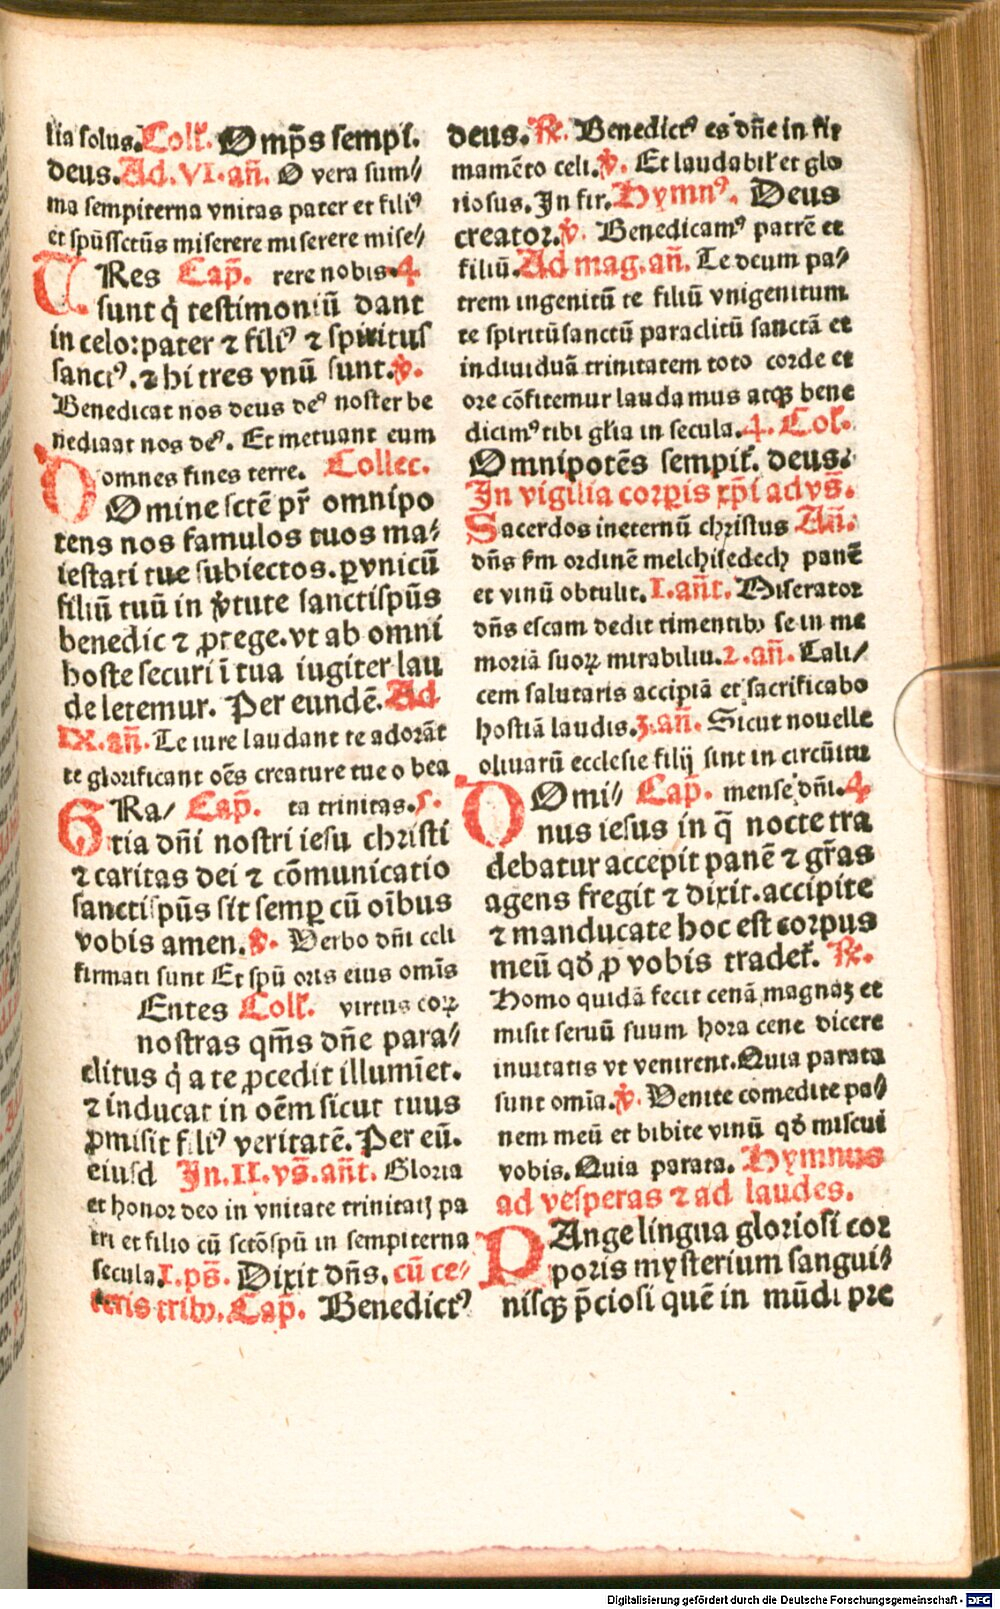 lia solus. Coll'. Omp̄s sempi.
deus. Ad. VI. an̄. O vera sum⸗
ma sempiterna vnitas pater et filiꝰ
et spūssctūs miserere miserere mise⸗
TRes Cap̄. rere nobis. 4.
sunt q̇ testimoniū dant
in celo: pater ⁊ filiꝰ ⁊ spiritus
sanctꝰ. ⁊ hi tres vnū sunt. ℣.
Benedicat nos deus deꝰ noster be
nedicat nos deꝰ. Et metuant eum
omnes fines terre. Collec.
DOmine sctē pr̄ omnipo
tens nos famulos tuos ma⸗
iestati tue subiectos. ꝑ vnicū
filiū tuū in v̓tute sanctispūs
benedic ⁊ ꝓtege. vt ab omni
hoste securi ī tua iugiter lau
de letemur. Per eundē. Ad
IX. an̄. Te iure laudant te adorāt
te glorificant oēs creature tue o bea
GRa/ Cap̄. ta trinitas. 5.
tia dn̄i nostri iesu christi
⁊ caritas dei ⁊ cōmunicatio
sanctispūs sit semꝑ cū oībus
vobis amen. ℣. Verbo dn̄i celi
firmati sunt Et spū oris eius omīs
Entes Coll'. virtus coꝝ
nostras qm̄s dn̄e para⸗
clitus q̇ a te ꝓcedit illumīet.
⁊ inducat in oēm sicut tuus
ꝓmisit filiꝰ veritatē. Per eū.
eiusd In. II. vs̄. an̄t. Gloria
et honor deo in vnitate trinitatꝭ pa
tri et filio cū sctōspū in sempiterna
secula. I. ps̄. Dixit dn̄s. cū ce⸗
teris tribꝰ. Cap̄. Benedictꝰ
deus. ℟. Benedictꝰ es dn̄e in fir
mamēto celi. ℣. Et laudabil' et glo
riosus. In fir. Hymnꝰ. Deus
creator. ℣. Benedicamꝰ patrē et
filiū. Ad mag. an̄. Te deum pa⸗
trem ingenitū te filiū vnigenitum
te spiritūsanctū paraclitū sanctā et
indiuiduā trinitatem toto corde et
ore cōfitemur laudamus atqꝫ bene
dicimꝰ tibi gl'ia in secula. 4. Col'.
Omnipotēs sempit'. deus.
In vigilia corꝑis xp̄i ad vs̄.
Sacerdos ineternū christus An̄.
dn̄s s'm ordinē melchisedech panē
et vinū obtulit. I. an̄t. Miserator
dn̄s escam dedit timentibꝰ se in me
moriā suoꝝ mirabiliu. 2. an̄. Cali/
cem salutaris accipiā et sacrificabo
hostiā laudis. 3. an̄. Sicut nouelle
oliuarū ecclesie filij sint in circūitu
DOmi⸗ Cap̄. mense dn̄i. 4
nus iesus in q̄ nocte tra
debatur accepit panē ⁊ gr̄as
agens fregit ⁊ dixit. accipite
⁊ manducate hoc est corpus
meū qd̓ ꝓ vobis tradet'. ℟.
Homo quidā fecit cenā magnaꝫ et
misit seruū suum hora cene dicere
inuitatis vt venirent. Quia parata
sunt omīa. ℣. Venite comedite pa⸗
nem meū et bibite vinū qd̓ miscui
vobis. Quia parata. Hymnus
ad vesperas ⁊ ad laudes.
PAnge lingua gloriosi cor
poris mysterium sangui⸗
nisqꝫ p̄ciosi quē in mūdi pre
Digitalisierung gefördert durch die Deutsche Forschungsgemeinschaft - DFG